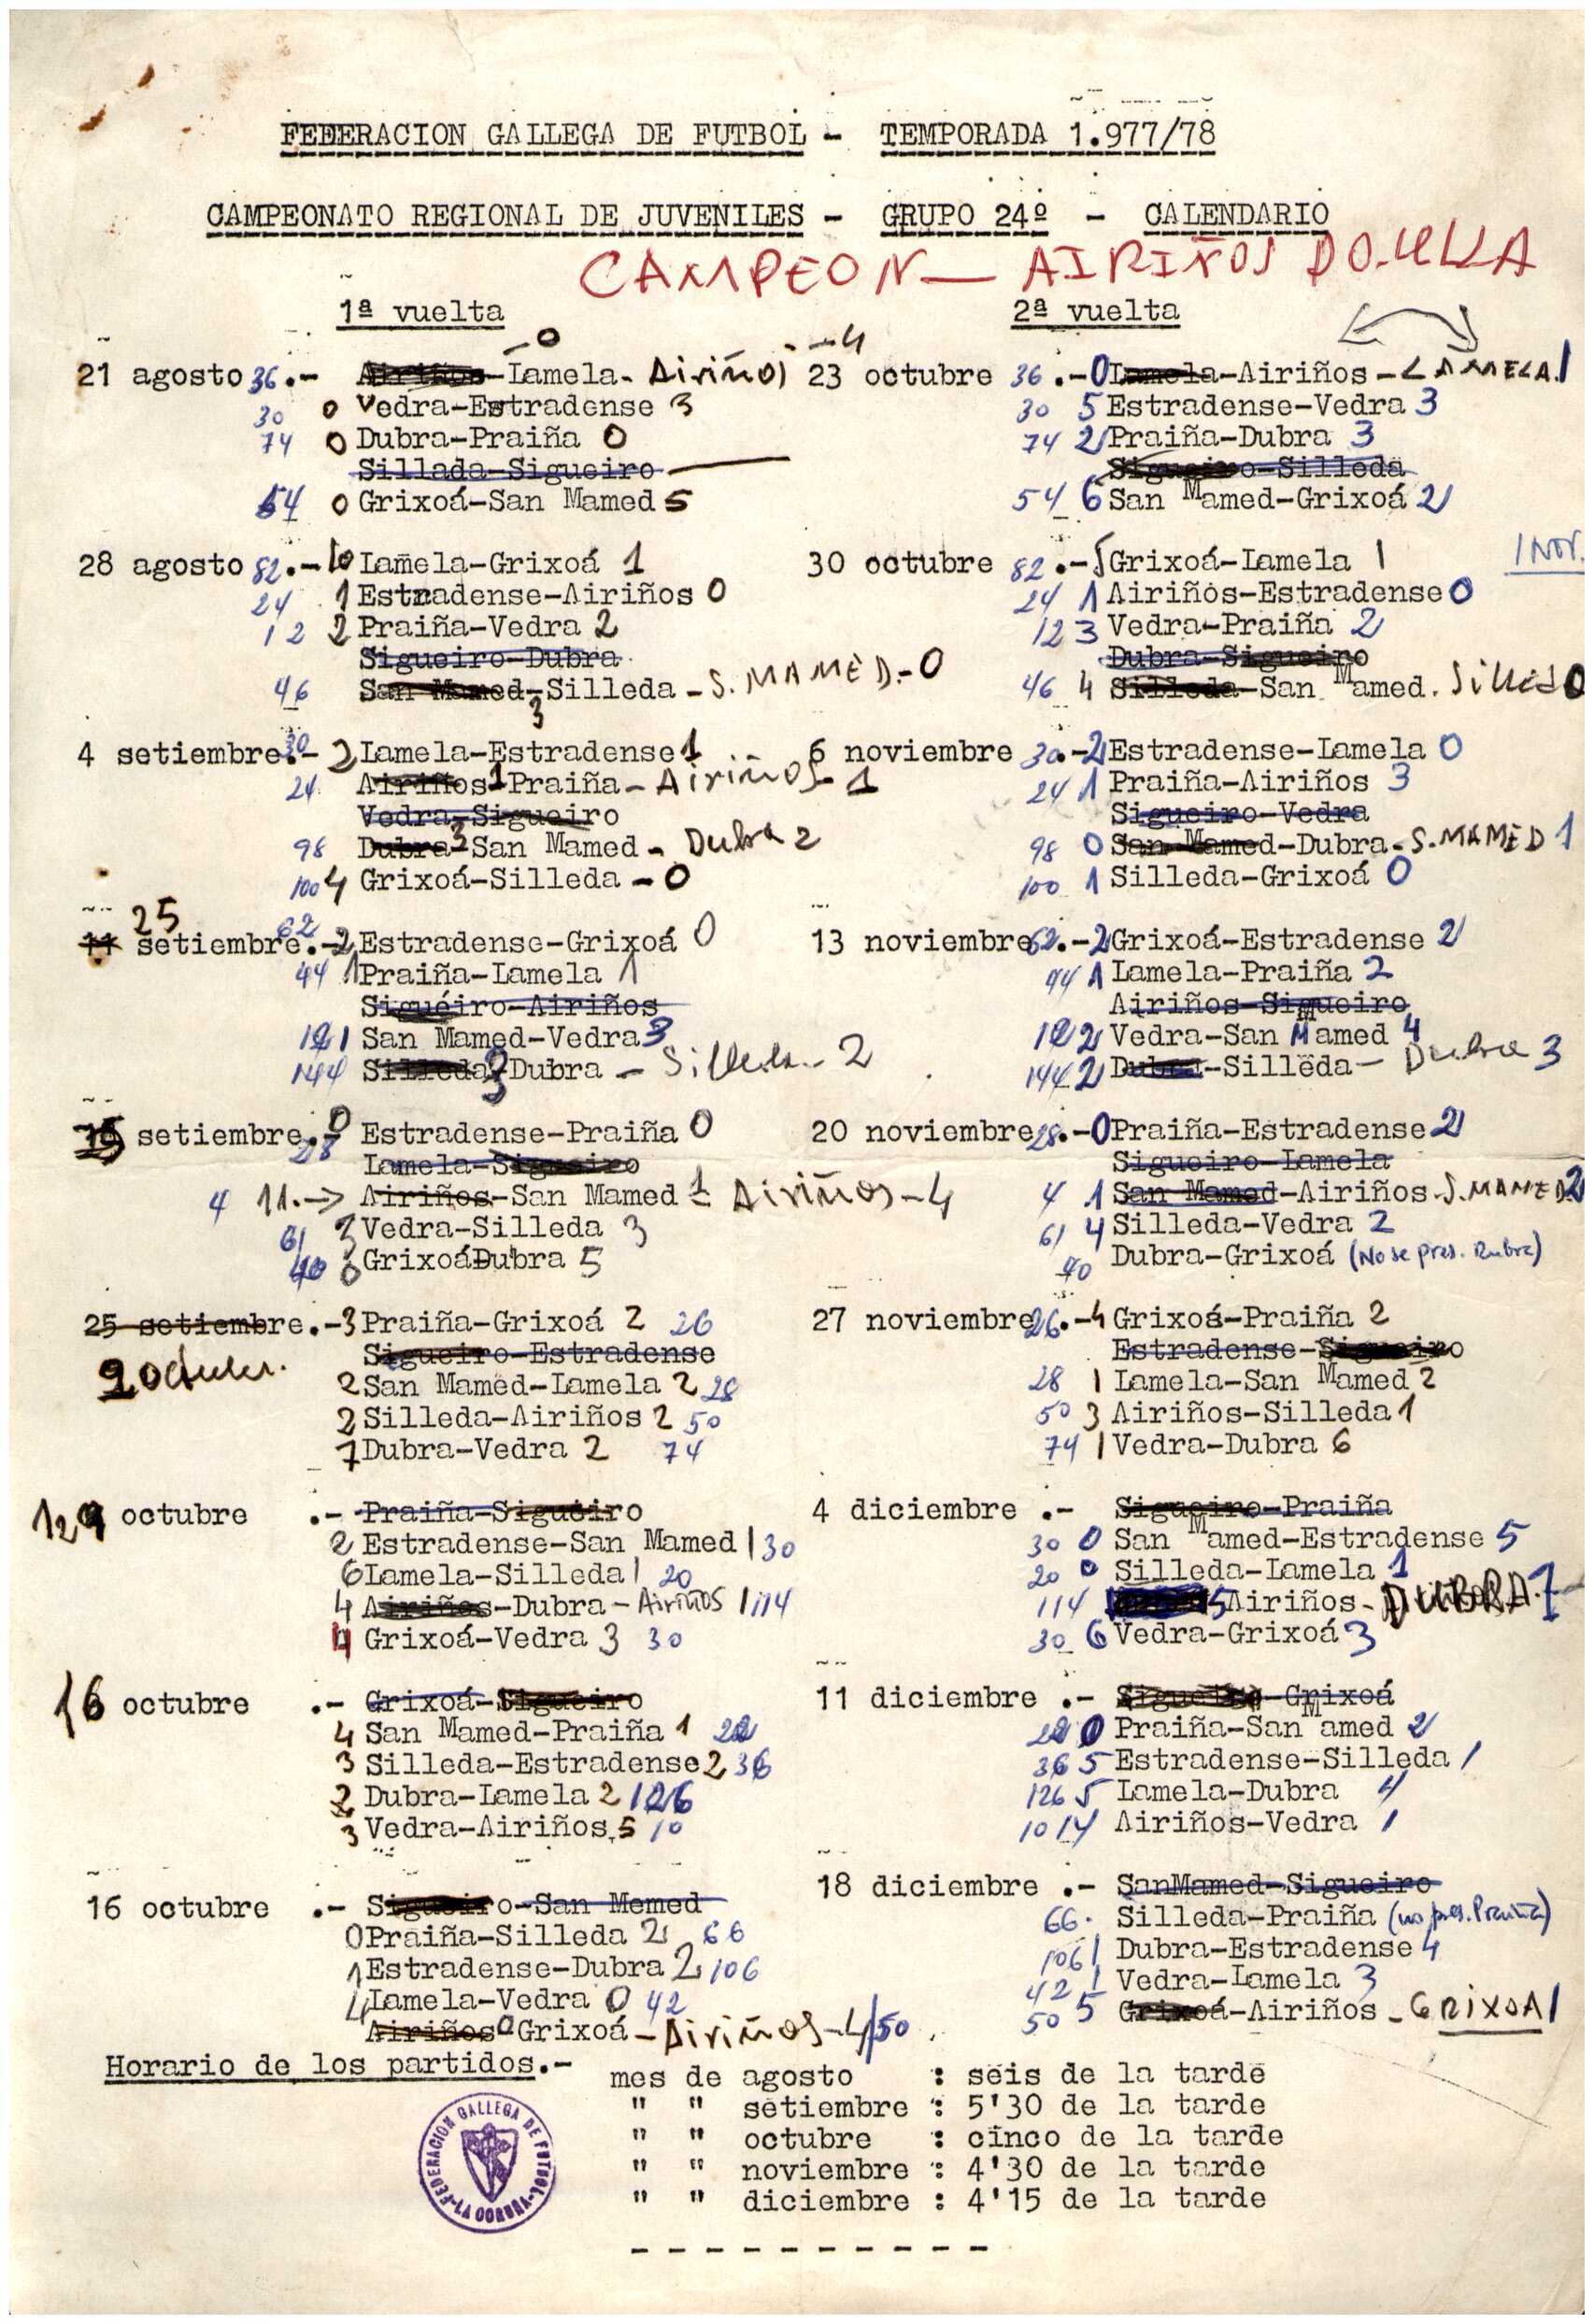 FEDERACION GALLEGA DE FUTBOL - TEMPORADA 1.977/78
CAMPEONATO REGIONAL DE JUVENILES - GRUPO 24º - CALENDARIO
CAMPEON - AIRIÑOS DO ULLA
1ª vuelta
21 agosto 36 .- Airiños-Lamela - Airiños
30 0 Vedra-Estradense 3
74 0 Dubra-Praiña 0
Sillada-Sigueiro
54 0 Grixoá-San Mamed 5
28 agosto 82 .- 10 Lamela-Grixoá 1
24 1 Estradense-Airiños 0
12 2 Praiña-Vedra 2
Sigueiro-Dubra
46 San Mamed-Silleda - S. MAMED - 0
3
4 setiembre 30 .- 2 Lamela-Estradense 1
24 Airiños 1 Praiña - Airiños - 1
Vedra-Sigueiro
98 Dubra 3 San Mamed - Dubra 2
100 4 Grixoá-Silleda - 0
25
11 setiembre 62 .- 2 Estradense-Grixoá 0
44 1 Praiña-Lamela 1
Siguéiro-Airiños
121 San Mamed-Vedra 3
144 Silleda 3 Dubra - Silleda - 2
setiembre .- 0 Estradense-Praiña 0
28
Lamela-Sigueiro
4 11.-> Airiños-San Mamed 1 - Airiños - 4
61 3 Vedra-Silleda 3
40 0 GrixoáDubra 5
25 setiembre .- 3 Praiña-Grixoá 2 26
2 Octubre.
Sigueiro-Estradense
2 San Mamed-Lamela 2 28
2 Silleda-Airiños 2 50
7 Dubra-Vedra 2 74
12 9 octubre .- Praiña-Sigueiro
2 Estradense-San Mamed 1 30
6 Lamela-Silleda 1 20
4 Airiños-Dubra - Airiños 1 114
4 Grixoá-Vedra 3 30
16 octubre .- Grixoá-Sigueiro
4 San Mamed-Praiña 1 22
3 Silleda-Estradense 2 36
2 Dubra-Lamela 2 126
3 Vedra-Airiños 5 10
16 octubre .- Sigueiro-San Memed
0 Praiña-Silleda 2 66
1 Estradense-Dubra 2 106
4 Lamela-Vedra 0 42
Airiños 0 Grixoá - Airiños - 4 50
2ª vuelta
23 octubre 36 .- 0 Lamela-Airiños - LAMELA 1
30 5 Estradense-Vedra 3
74 2 Praiña-Dubra 3
Sigueiro-Silleda
54 6 San Mamed-Grixoá 2
30 octubre 82 .- 5 Grixoá-Lamela 1 1 NOV.
24 1 Airiños-Estradense 0
12 3 Vedra-Praiña 2
Dubra-Sigueiro
46 4 Silleda-San Mamed. Silled 0
6 noviembre 30 .- 2 Estradense-Lamela 0
24 1 Praiña-Airiños 3
Sigueiro-Vedra
98 0 San Mamed-Dubra - S. MAMED 1
100 1 Silleda-Grixoá 0
13 noviembre 62 .- 2 Grixoá-Estradense 2
44 1 Lamela-Praiña 2
Airiños-Sigueiro
122 Vedra-San Mamed 4
144 2 Dubra-Silleda - Dubra 3
20 noviembre 28 .- 0 Praiña-Estradense 2
Sigueiro-Lamela
4 1 San Mamed-Airiños - S. MAMED 2
61 4 Silleda-Vedra 2
40 Dubra-Grixoá (No se pres. Dubra)
27 noviembre 26 .- 4 Grixoá-Praiña 2
Estradense-Sigueiro
28 1 Lamela-San Mamed 2
50 3 Airiños-Silleda 1
74 1 Vedra-Dubra 6
4 diciembre .- Sigueiro-Praiña
30 0 San Mamed-Estradense 5
20 0 Silleda-Lamela 1
114 5 Airiños - DUBRA 1
30 6 Vedra-Grixoá 3
11 diciembre .- Sigueiro-Grixoá
22 0 Praiña-San Mamed 2
36 5 Estradense-Silleda 1
126 5 Lamela-Dubra 4
10 14 Airiños-Vedra 1
18 diciembre .- SanMamed-Sigueiro
66 Silleda-Praiña (no pres. Praiña)
106 1 Dubra-Estradense 4
42 1 Vedra-Lamela 3
50 5 Grixoá-Airiños - GRIXOA 1
Horario de los partidos.-
mes de agosto : seis de la tarde
" " setiembre : 5'30 de la tarde
" " octubre : cinco de la tarde
" " noviembre : 4'30 de la tarde
" " diciembre : 4'15 de la tarde
FEDERACION GALLEGA DE FUTBOL - LA CORUÑA -